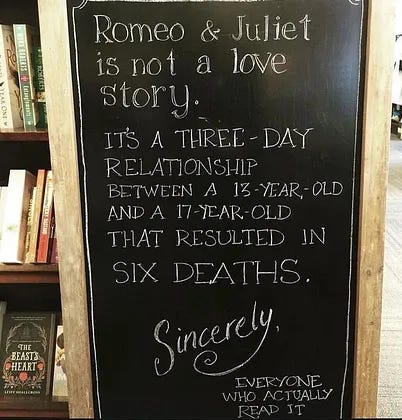 Romeo & Juliet
is not a love
story.
IT'S A THREE-DAY
RELATIONSHIP
BETWEEN A 13-YEAR-OLD
AND A 17-YEAR-OLD
THAT RESULTED IN
SIX DEATHS.
Sincerely,
EVERYONE
WHO ACTUALLY
READ IT
THE
BEAST'S
HEART